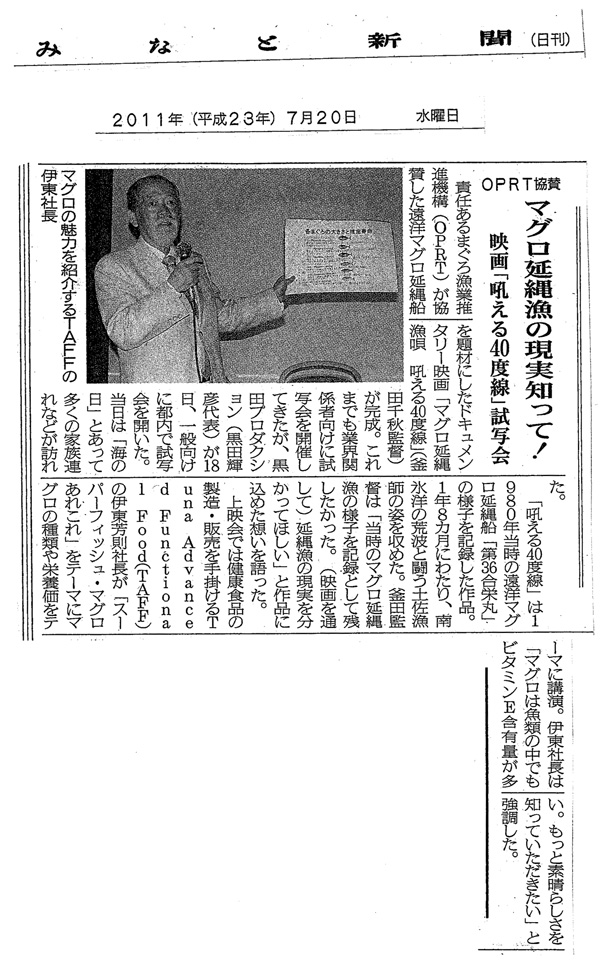 みなと新聞(日刊)
2011年(平成23年)7月20日 水曜日
OPRT協賛
マグロ延縄漁の現実知って!
映画「吼える40度線」試写会
責任あるまぐろ漁業推
進機構(OPRT)が協
賛した遠洋マグロ延縄船
を題材にしたドキュメン
タリー映画「マグロ延縄
漁唄 吼える40度線」(釜
田千秋監督)
が完成。これ
までも業界関
係者向けに試
写会を開催し
てきたが、黒
田プロダクシ
ョン(黒田輝
彦代表)が18
日、一般向け
に都内で試写
会を開いた。
当日は「海の
日」とあって
多くの家族連
れなどが訪れ
た。
「吼える40度線」は1
980年当時の遠洋マグ
ロ延縄船「第36合栄丸」
の様子を記録した作品。
1年8カ月にわたり、南
氷洋の荒波と闘う土佐漁
師の姿を収めた。釜田監
督は「当時のマグロ延縄
漁の様子を記録として残
したかった。(映画を通
して)延縄漁の現実を分
かってほしい」と作品に
込めた想いを語った。
上映会では健康食品の
製造・販売を手掛けるT
una Advance
d Functiona
l Food(TAFF)
の伊東芳則社長が「スー
パーフィッシュ・マグロ
あれこれ」をテーマにマ
グロの種類や栄養価をテ
ーマに講演。伊東社長は
「マグロは魚類の中でも
ビタミンE含有量が多
い。もっと素晴らしさを
知っていただきたい」と
強調した。
マグロの魅力を紹介するTAFFの
伊東社長